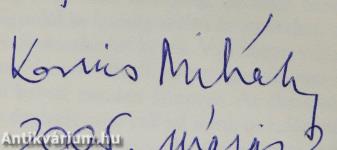 Kovács Mihály
2005. május
Antikvárium.hu